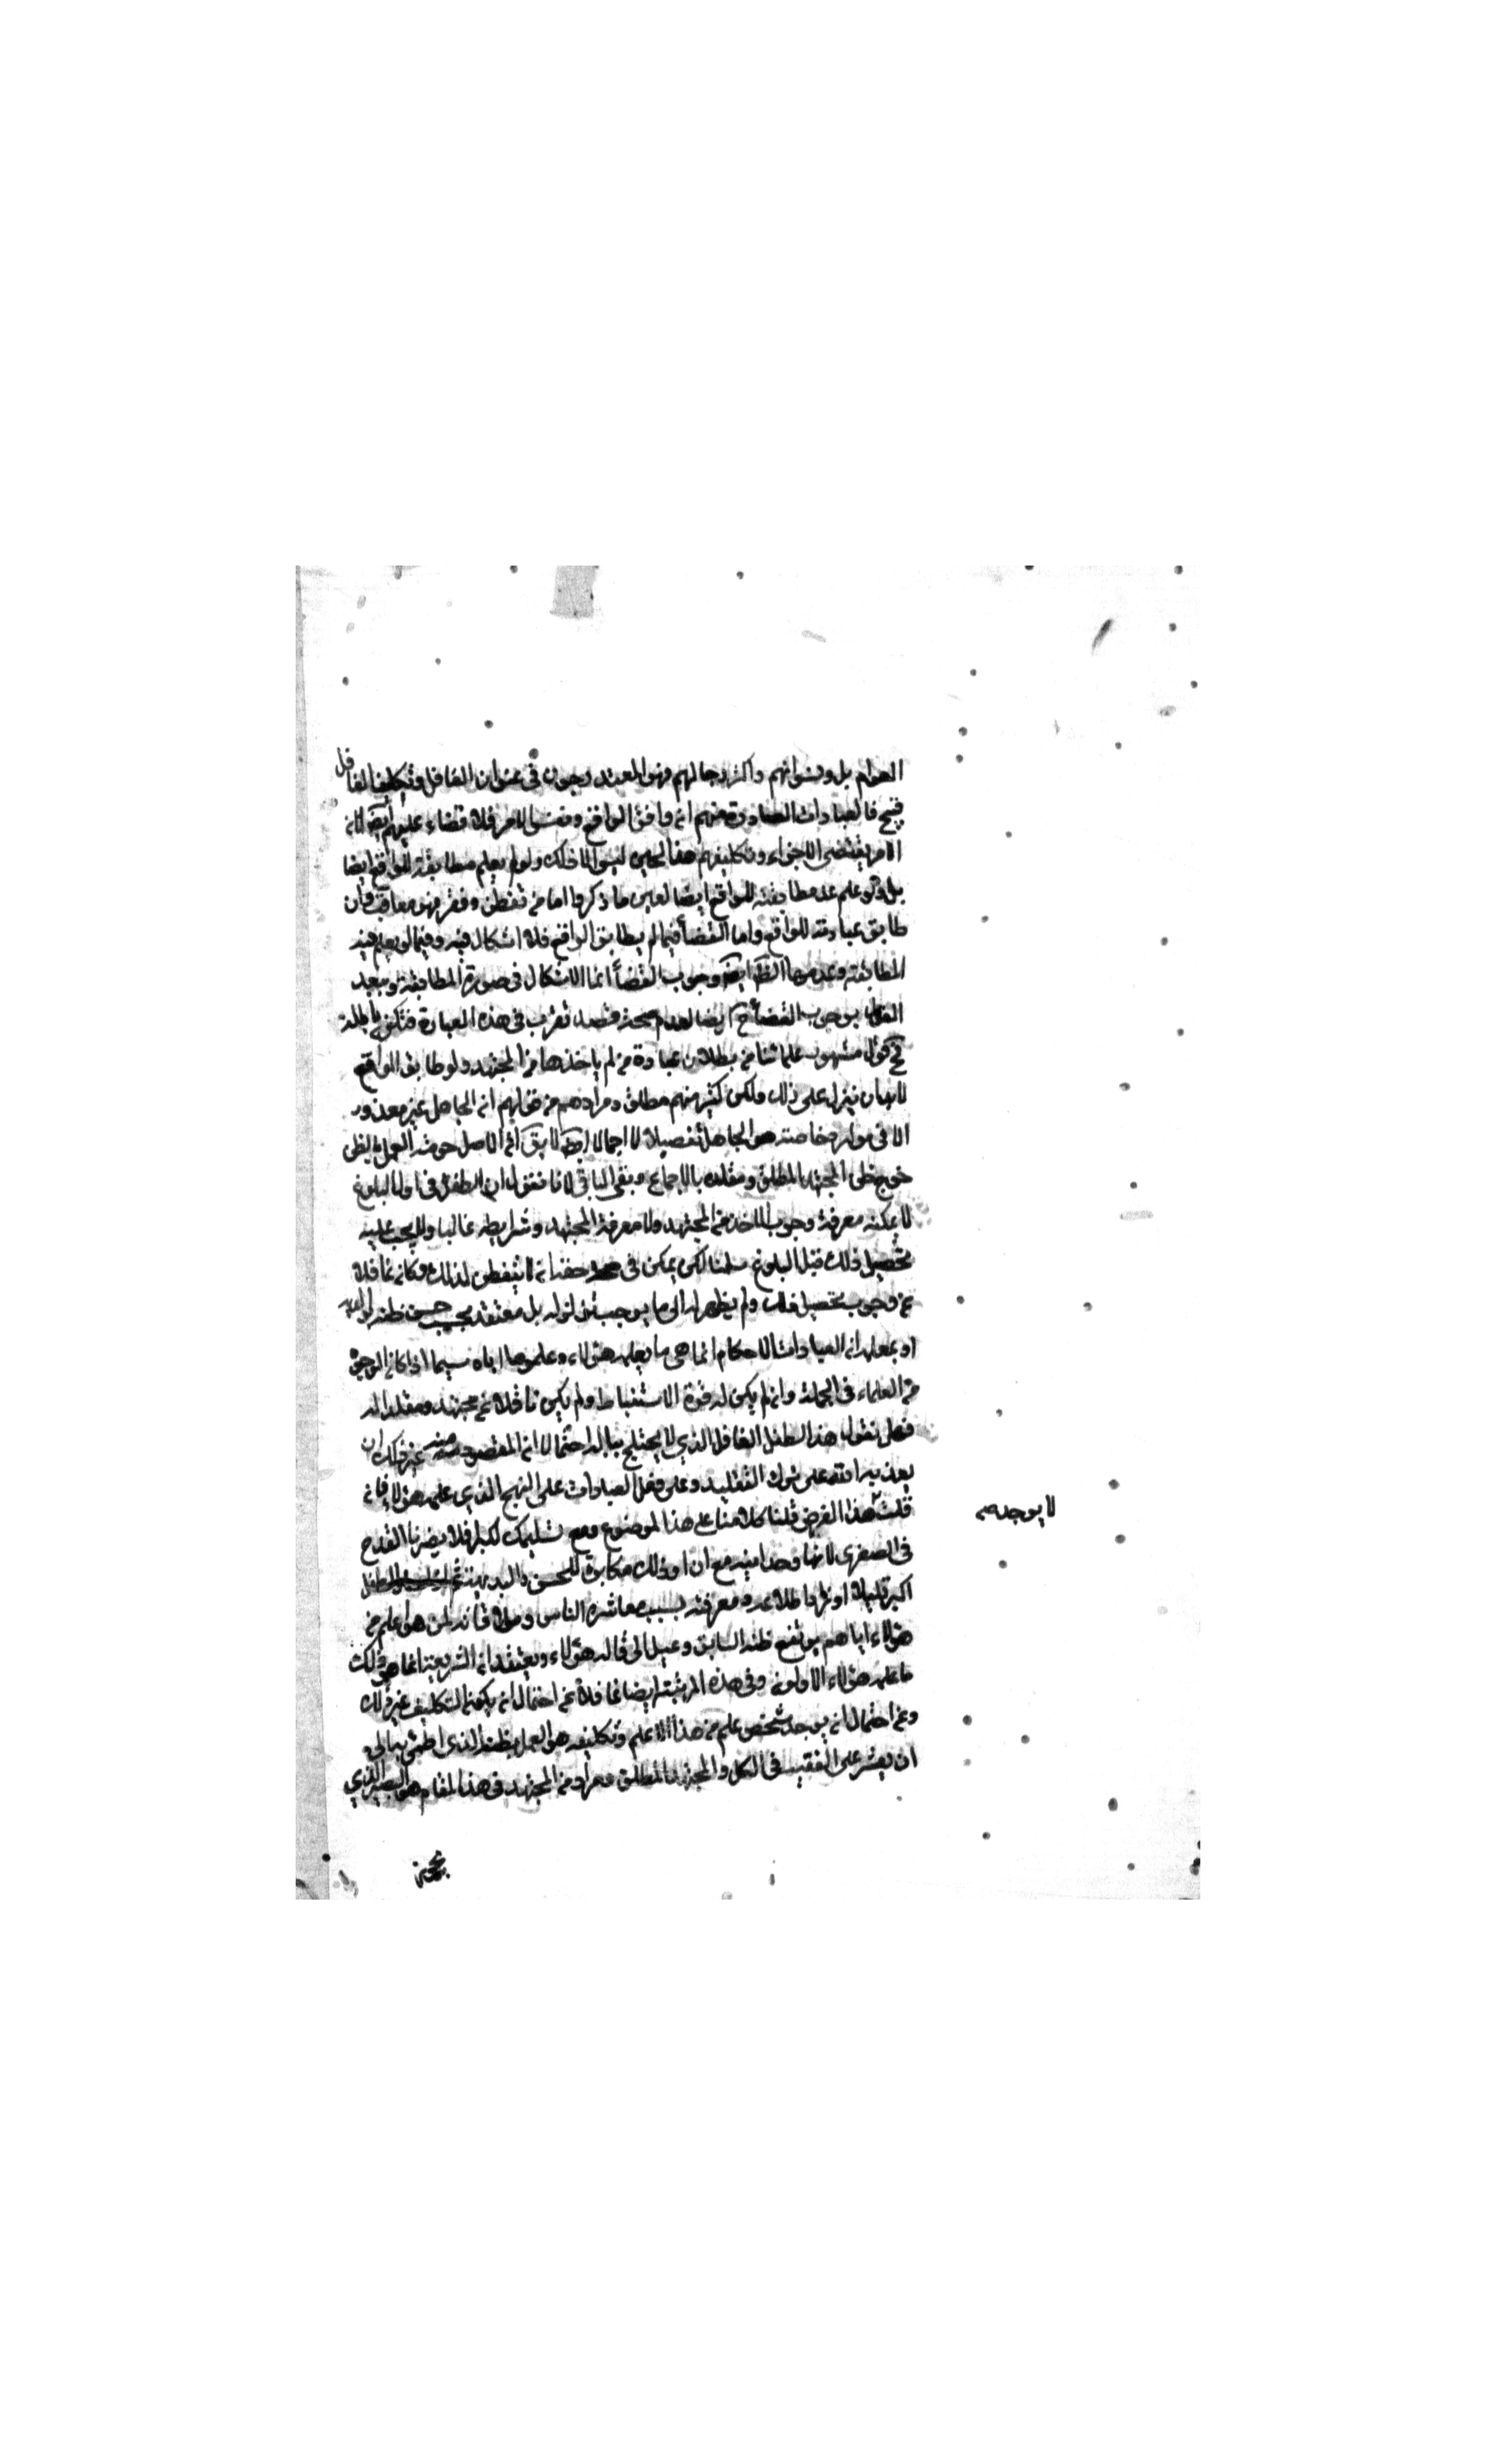 العوام بل ونسوانهم واكثر رجالهم فهو المعتد رجون فى عنوان الغافل وتكليف الغافل
قبيح فالعبادات الصادرة منهم ان وافق الواقع ونفس الامر فلا قضاء عليهم ايضا لان
الامر يقتضى الاجزاء وتكليفهم هذا الحين ليس الا ذلك ولو لم يعلم مطابقة للواقع ايضا
بل ولو علم عدم مطابقته للواقع ايضا لعين ما ذكر واما من تفطن وقصر فهو معاقب وان
طابق عبادته للواقع واما القضاء فيما لم يطابق الواقع فلا اشكال فيه وفيما لو يعلم فيه
المطابقة وعدمها الظ ايضا وجوب القضاء انما الاشكال فى صورة المطابقة ويبعد
القول بوجوب القضاء ح ايضا لعدم صحة قصد تقرب فى هذه العبادة فتكون باطلة
فح قول مشهور علمائنا من بطلان عبادة من لم ياخذها من المجتهد ولو طابق الواقع
لابد ان ينزل على ذلك ولكن كثير منهم مطلق ومرادهم من قولهم ان الجاهل غير معذور
الا فى موارد خاصة هو الجاهل تفصيلا لا اجمالا ايضا لا يق ان الاصل حرمة العمل بالظن
خرج ظن المجتهد المطلق ومقلده بالاجماع وبقى الباقى لانا نقول ان الطفل فى اول البلوغ
لا يمكنه معرفة وجوب الاخذ عن المجتهد ولا معرفة المجتهد وشرايطه غالبا ولا يجب عليه
تحصيل ذلك قبل البلوغ سلمنا لكن يمكن فى حقه ان لا يتفطن لذلك وكان غافلا
عن وجوب تحصيل ذلك ولم يظهر له الى ما يوجب تزلزله بل معتقد بحسب حسن ظنه بوالديه
او بمعلمه ان العبادات الاحكام انما هى ما يعلمه هؤلاء وعلموها اياه سيما اذا كان الرجوع
من العلماء فى الجملة وان لم يكن له قوة الاستنباط ولم يكن ناقلا عن مجتهد ومقلدا له
فهل نقول هذا الطفل الغافل الذي لا يختلج بباله احتمال ان المقصود منه غير ذلك ان
يعذبه الله على ترك التقليد وعلى فعل العبادات على النهج الذي علمه هؤلاء فان
قلت هذا الفرض قلنا كلامنا على هذا الموضوع ومع تسليمك الكبرى فلا يضرنا القدح
لا يوجد صح
فى الصغرى لانها وجدانية مع ان ذلك مكابرة للحس والبديهة ثم الطفل
اكبر قليلا او زاد اطلاعه ومعرفته بسبب معاشرة الناس وملاقات من هو اعلم من
هؤلاء اياهم يرتفع ظنه السابق وعيل الى قاله هؤلاء ويعتقد ان الشريعة انما هو ذلك
ما علمه هؤلاء الاولون وفى هذه المرتبة ايضا غافلا عن احتمال ان يكون التكليف غير ذلك
وعن احتمال ان يوجد شخص اعلم من هذا الاعلم وتكليفه هو العمل بظنه الذى اطمئن بها الى
ان يعثر على الفقيه فى الكل والمجتهد المطلق ومرادنا من المجتهد فى هذا المقام هو البصير الذي